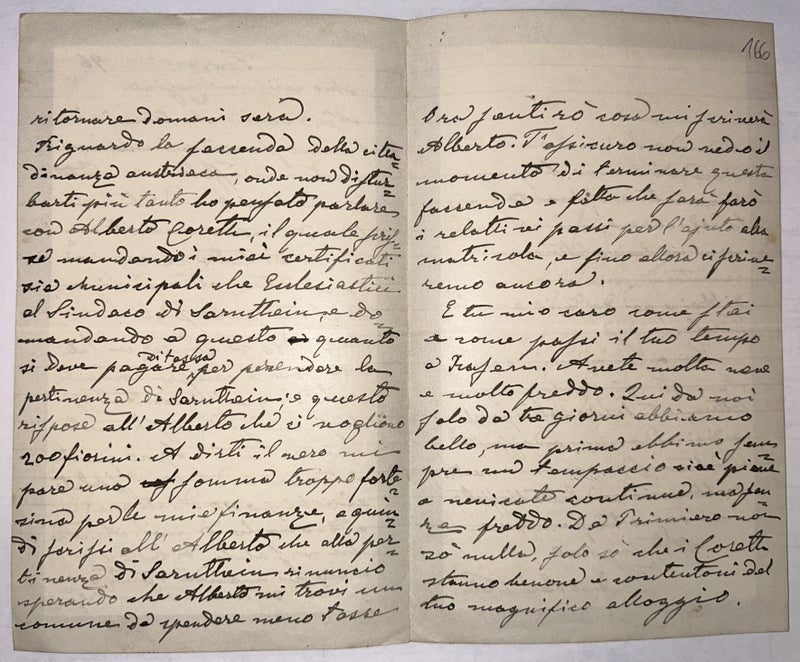 ritornare domani sera.
Riguardo la fassenda della citta=
dinanza austriaca, onde non distur=
barti più tanto ho pensato parlare
con Alberto Coreth, il quale scris=
se mandando i miei certificati
sia Municipali che Ecclesiastici
al Sindaco di Sarnthein, e do=
mandando a questo quanto
si deve pagare di tassa per prendere la
pertinenza di Sarnthein, e questo
rispose all'Alberto che ci vogliono
200 fiorini. A dirti il vero mi
pare una somma troppo forte=
sina per le mie finanze, e quin=
di scrissi all'Alberto che alla per=
tinenza di Sarnthein rinuncio
sperando che Alberto mi trovi un
comune da spendere meno tasse
166
Ora sentirò cosa mi scriverà
Alberto. T'assicuro non vedo il
momento di terminare questa
fassenda e fatta che sarà farò
i relativi passi per l'ajuto alla
matricola, e fino allora ci scrive=
remo ancora.
E tu mio caro come stai
e come passi il tuo tempo
a . Avete molta neve
e molto freddo. Qui da noi
solo da tre giorni abbiamo
bello, ma prima ebbimo sem=
pre un tempaccio cioè piove
a nevicate continue, ma sen=
za freddo. Da Primiero non
sò nulla, solo sò che i Coreth
stanno benone e contentoni del
tuo magnifico alloggio.